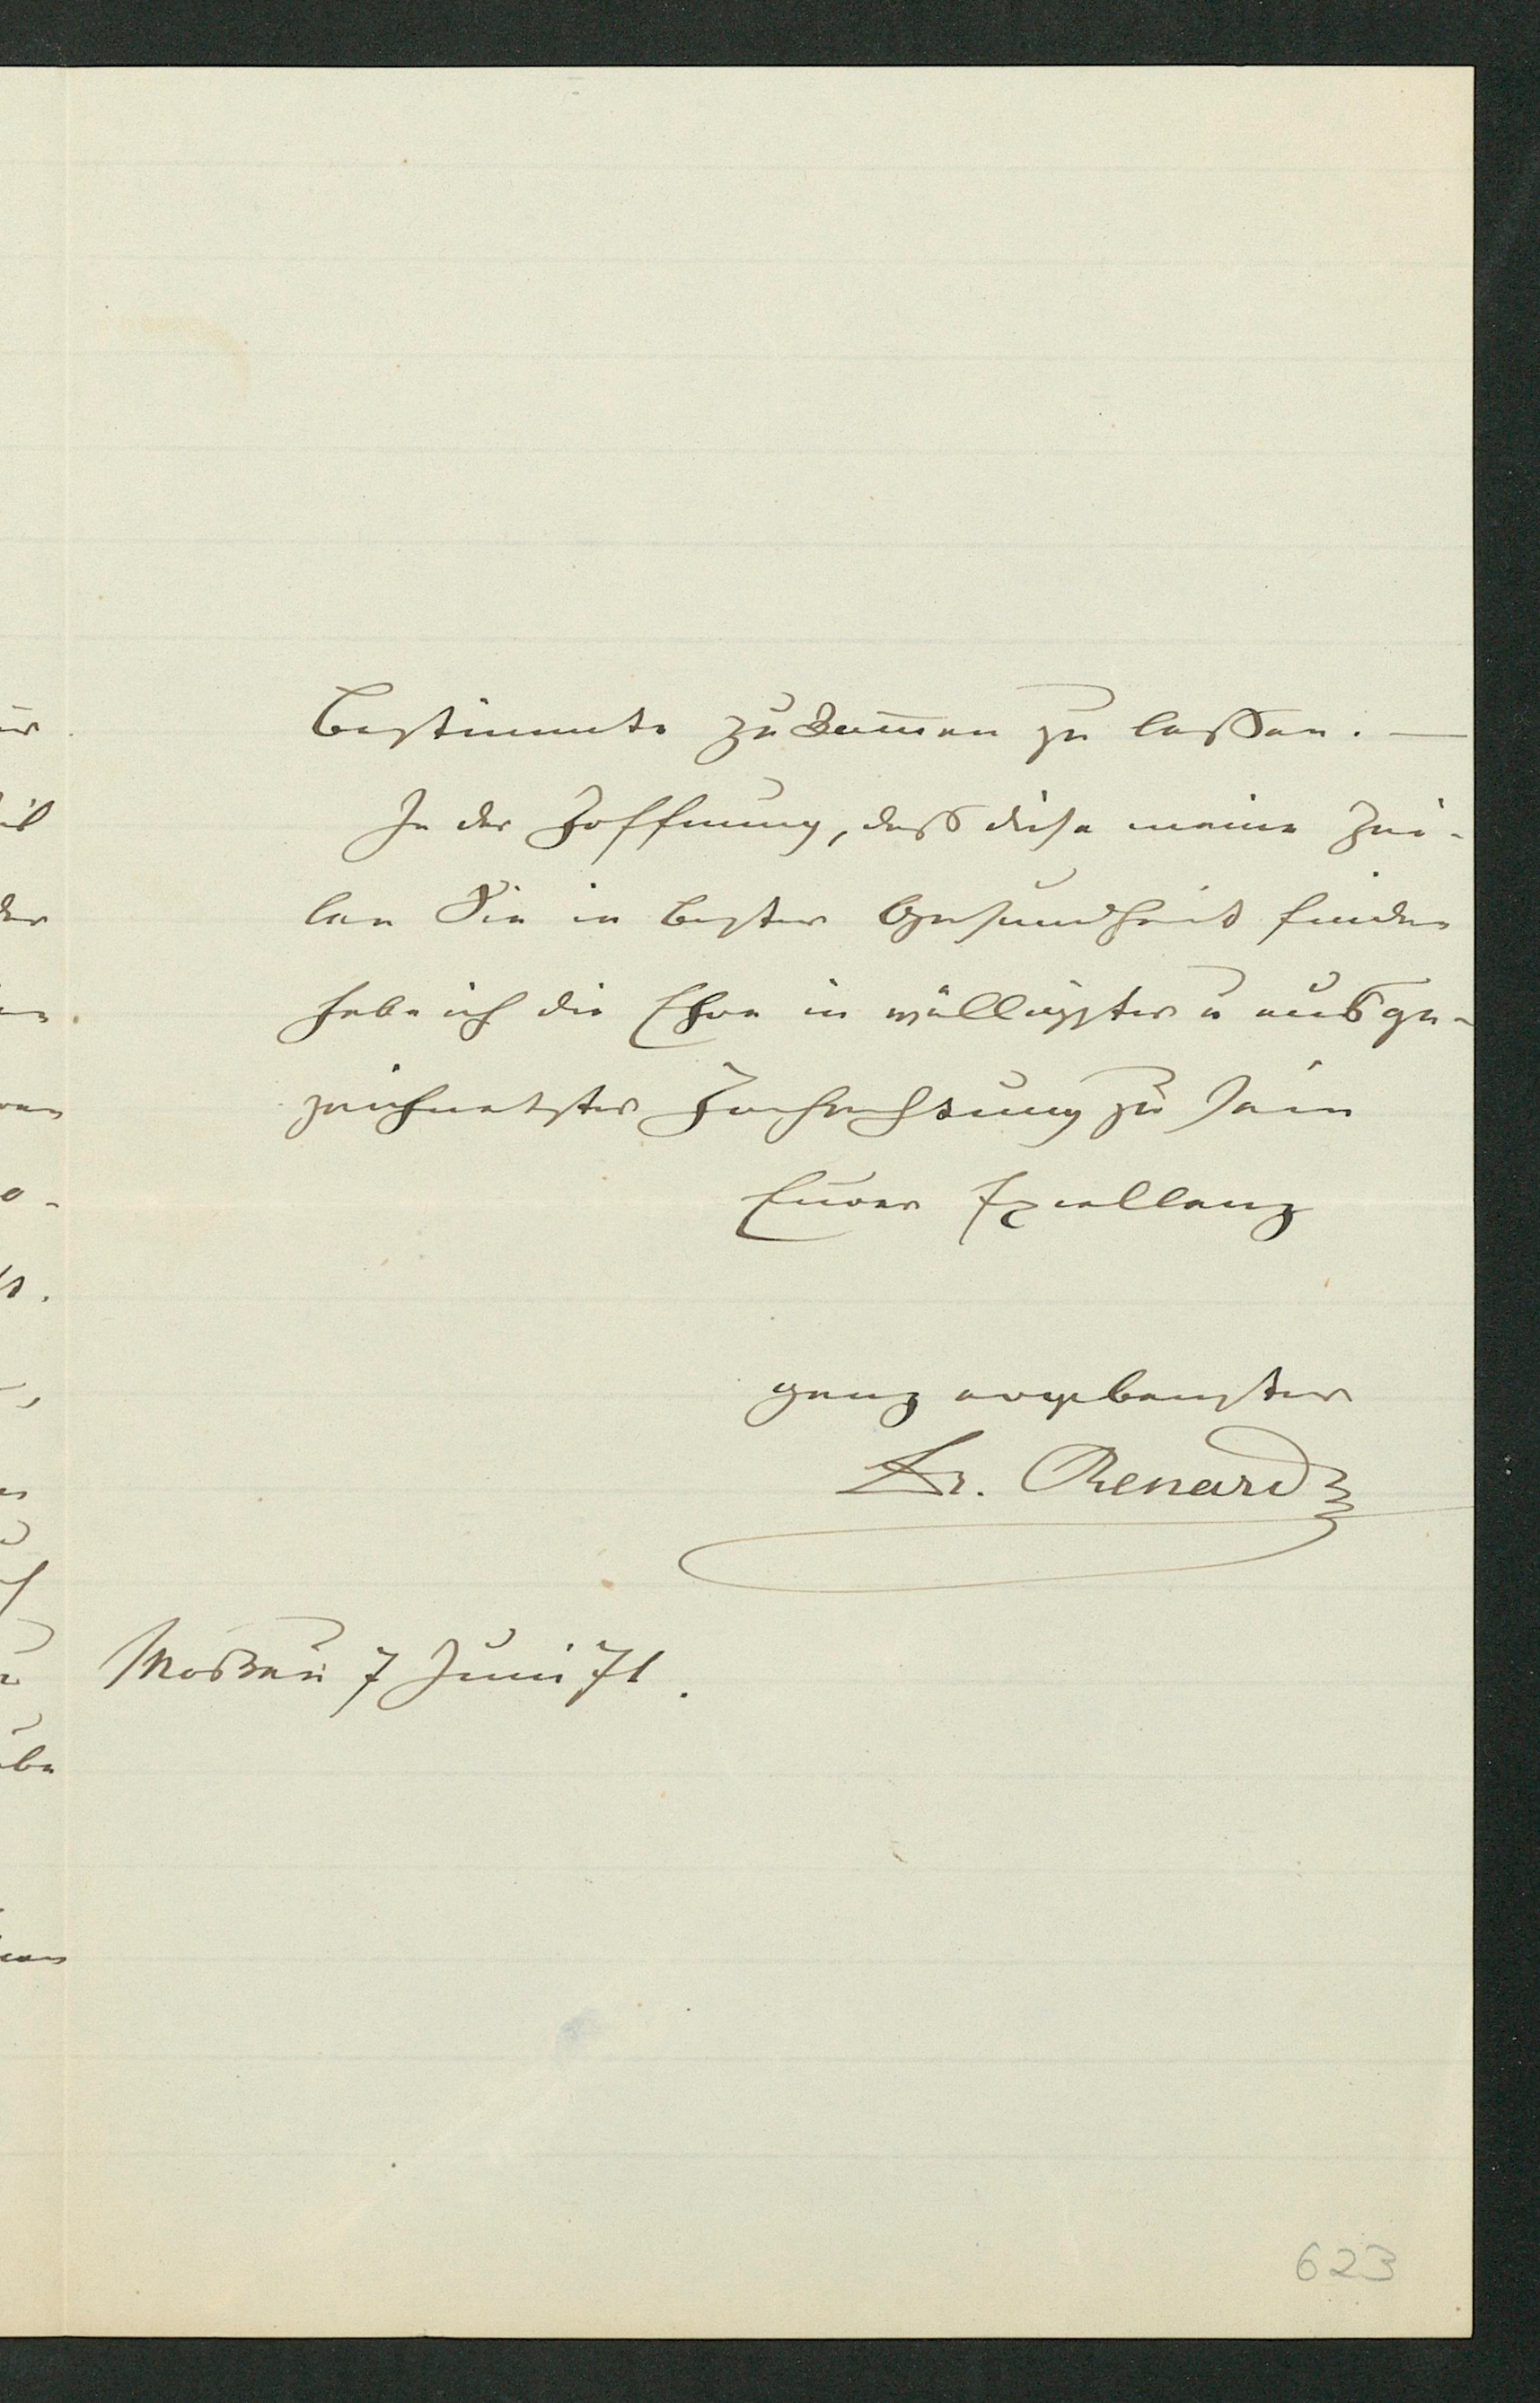 Bestimmte zukom̄en zu lassen. —
In der Hoffnung, dass diese meine Zei-
len Sie in bester Gesundheit finden
habe ich die Ehre in völligster u ausge-
zeichnetster Hochachtung zu sein
Eurer Exzellenz
ganz ergebenster
Dr. Renard
Moskau 7 Juni 71.
623